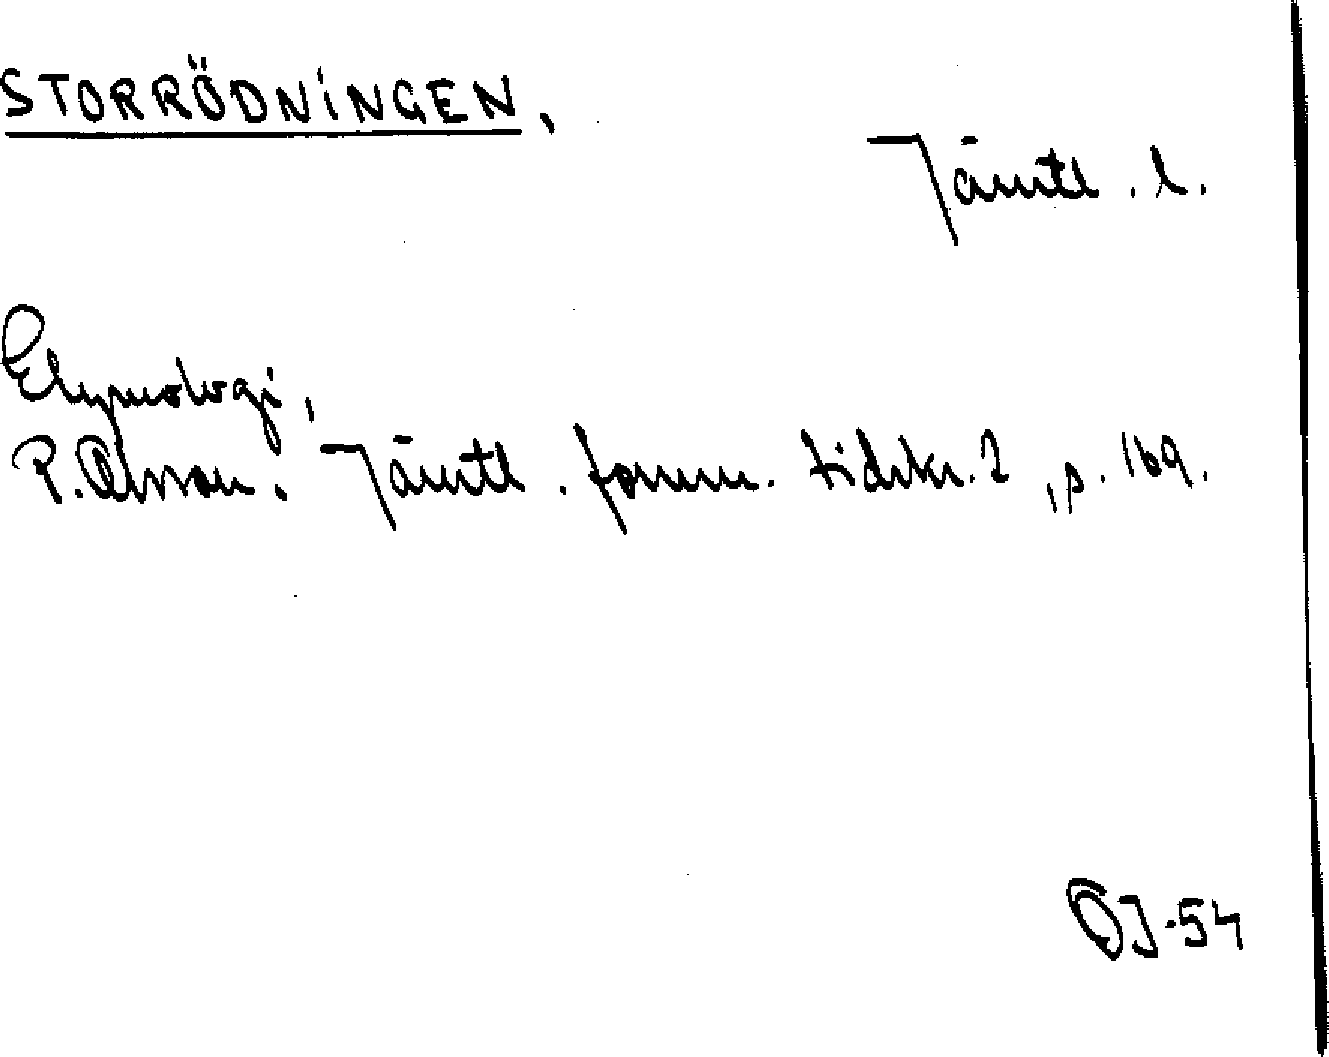 STORRÖDNINGEN,
Jämtl. l.
Etymologi,
P. Olsson. Jämtl. fornm. tidskr. 2, s. 169.
ÖJ-54